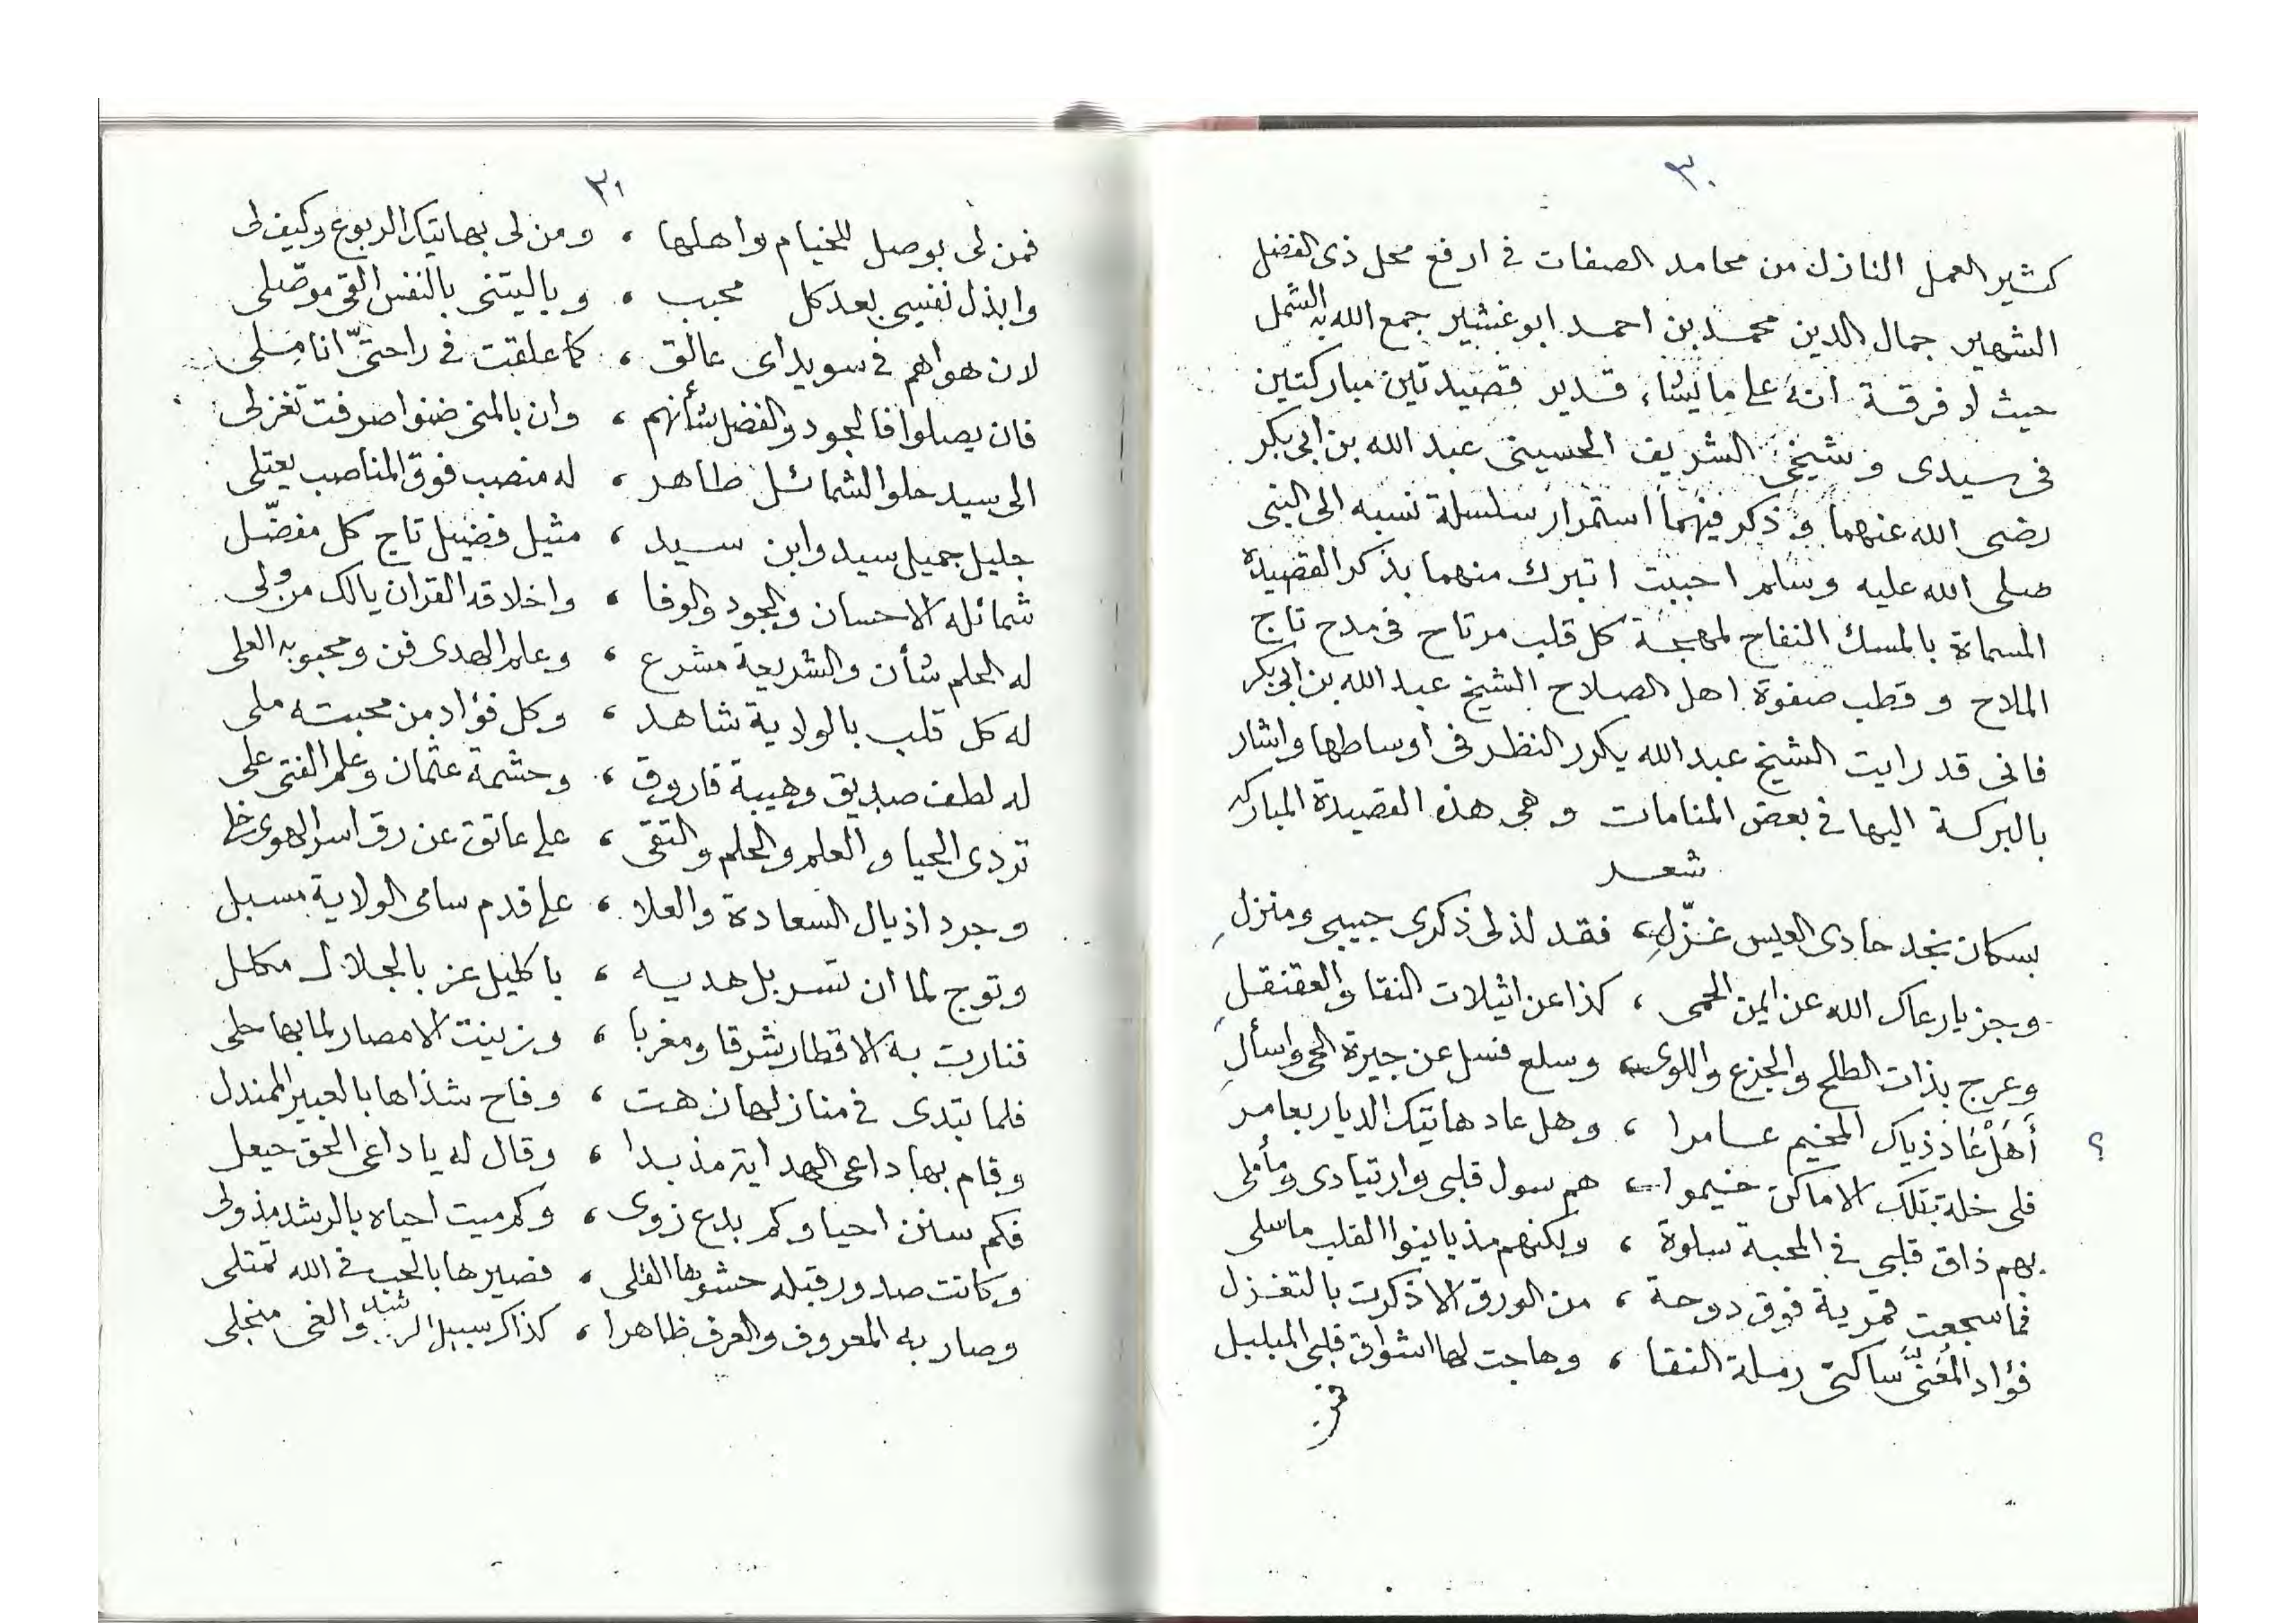 ٣٠
كثير العمل النازل من محامد الصفات فى ارفع محل ذى الفضل
الشهير جمال الدين محمد بن احمد ابوغشير جمع الله به الشمل
حيث لا فرقة انه على ما يشاء قدير قصيدتين مباركتين
فى سيدى وشيخى الشريف الحسينى عبد الله بن ابى بكر
رضى الله عنهما وذكر فيهما استمرار سلسلة نسبه الى النبى
صلى الله عليه وسلم احببت اتبرك منهما بذكر القصيدة
المسماة بالمسك النفاح لمهجة كل قلب مرتاح فى مدح تاج
الملاح وقطب صفوة اهل الصلاح الشيخ عبد الله بن ابى بكر
فانى قد رايت الشيخ عبد الله يكرر النظر فى اوساطها واشار
بالبركة اليها فى بعض المنامات وهى هذه القصيدة المباركه
شعر
بسكان نجد حادى العيس غزّلِ، فقد لذ لى ذكرى حبيبى ومنزلِ
وجز يا رعاك الله عن ايمن الحمى ، كذا عن اثيلات النقا والعقنقل
وعرج بذات الطلح والجزع واللوى، وسلع فسل عن جيرة الحى واسألِ
أَهَلْ عَاد ذياك المخيم عامرا ، وهل عاد هاتيك الديار بعامر ؟
فلى خلة بتلك الاماكن خيموا، هم سول قلبى وارتيادى ومأملى
بهم ذاق قلبى فى المحبة سلوة ، ولكنهم مذ باينوا القلب ما سلى
فما سجعت قمرية فوق دوحة ، من الورق الا ذكرت بالتغزل
فؤاد المُعَنَّى ساكنى رملة النقا ، وهاجت لها اشواق قلبى المبلبل
فمن
٣١
فمن لى بوصل للخيام واهلها ، ومن لى بهاتيك الربوع وكيف لى
وابذل نفسى بعد كل محبب ، وياليتنى بالنفس القى موصّلى
لان هواهم فى سويداى عالق ، كما علقت فى راحتىّ اناملى
فان يصلوا فالجود والفضل شأنهم ، وان بالمنى ضنوا صرفت تغزلى
الى سيد حلو الشمائل طاهر ، له منصب فوق المناصب يعتلى
جليل جميل سيد وابن سيد ، مثيل فضيل تاج كل مفضّل
شمائله الاحسان والجود والوفا ، واخلاقه القران يالك من ولى
له الحلم شأن والشريعة مشرع ، وعلم الهدى فن ومحبوبه العلى
له كل قلب بالولاية شاهد ، وكل فؤاد من محبته ملى
له لطف صديق وهيبة فاروق ، وحشمة عثمان وعلم الفتى على
تردى الحيا والعلم والحلم والتقى ، على عاتق عن رق اسر الهوى خلى
وجرد اذيال السعادة والعلا ، على قدم سامى الولاية مسبل
وتوج لما ان تسربل هديه ، باكليل عز بالجلال مكلل
فنارت به الاقطار شرقا ومغربا ، وزينت الامصار لما بها حلى
فلما تبدى فى منازلها زهت ، وفاح شذاها بالعبير المندل
وقام بها داعى الهداية مذ بدا ، وقال له يا داعى الحق حيعل
فكم سنن احيا وكم بدع زوى ، وكم ميت احياه بالرشد مذ ولى
وكانت صدور قبله حشوها القلى ، فصيرها بالحب فى الله تمتلى
وصار به المعروف والعرف ظاهرا ، كذاك سبيل الرشد والغى منجلى